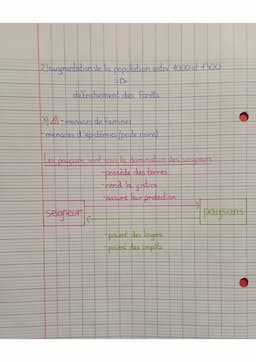 2) augmentation de la population entre 1000 et 1300
défrichement des forêts
3) ⚠ - menaces de famines
- menaces d'epidémies (peste noire)
Les paysans sont sous la domination des seigneurs
- possède des terres
- rend la justice
- assure leur protection
seigneur
paysans
- paient des loyers
- paient des impôts